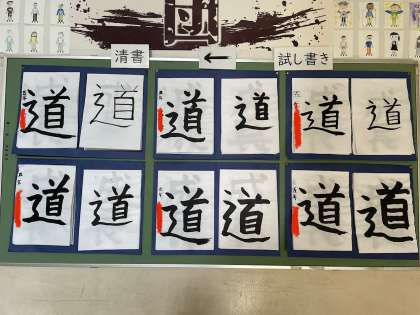 団
清書
←
試し書き
道 道 道 道 道 道
道 道 道 道 道 道